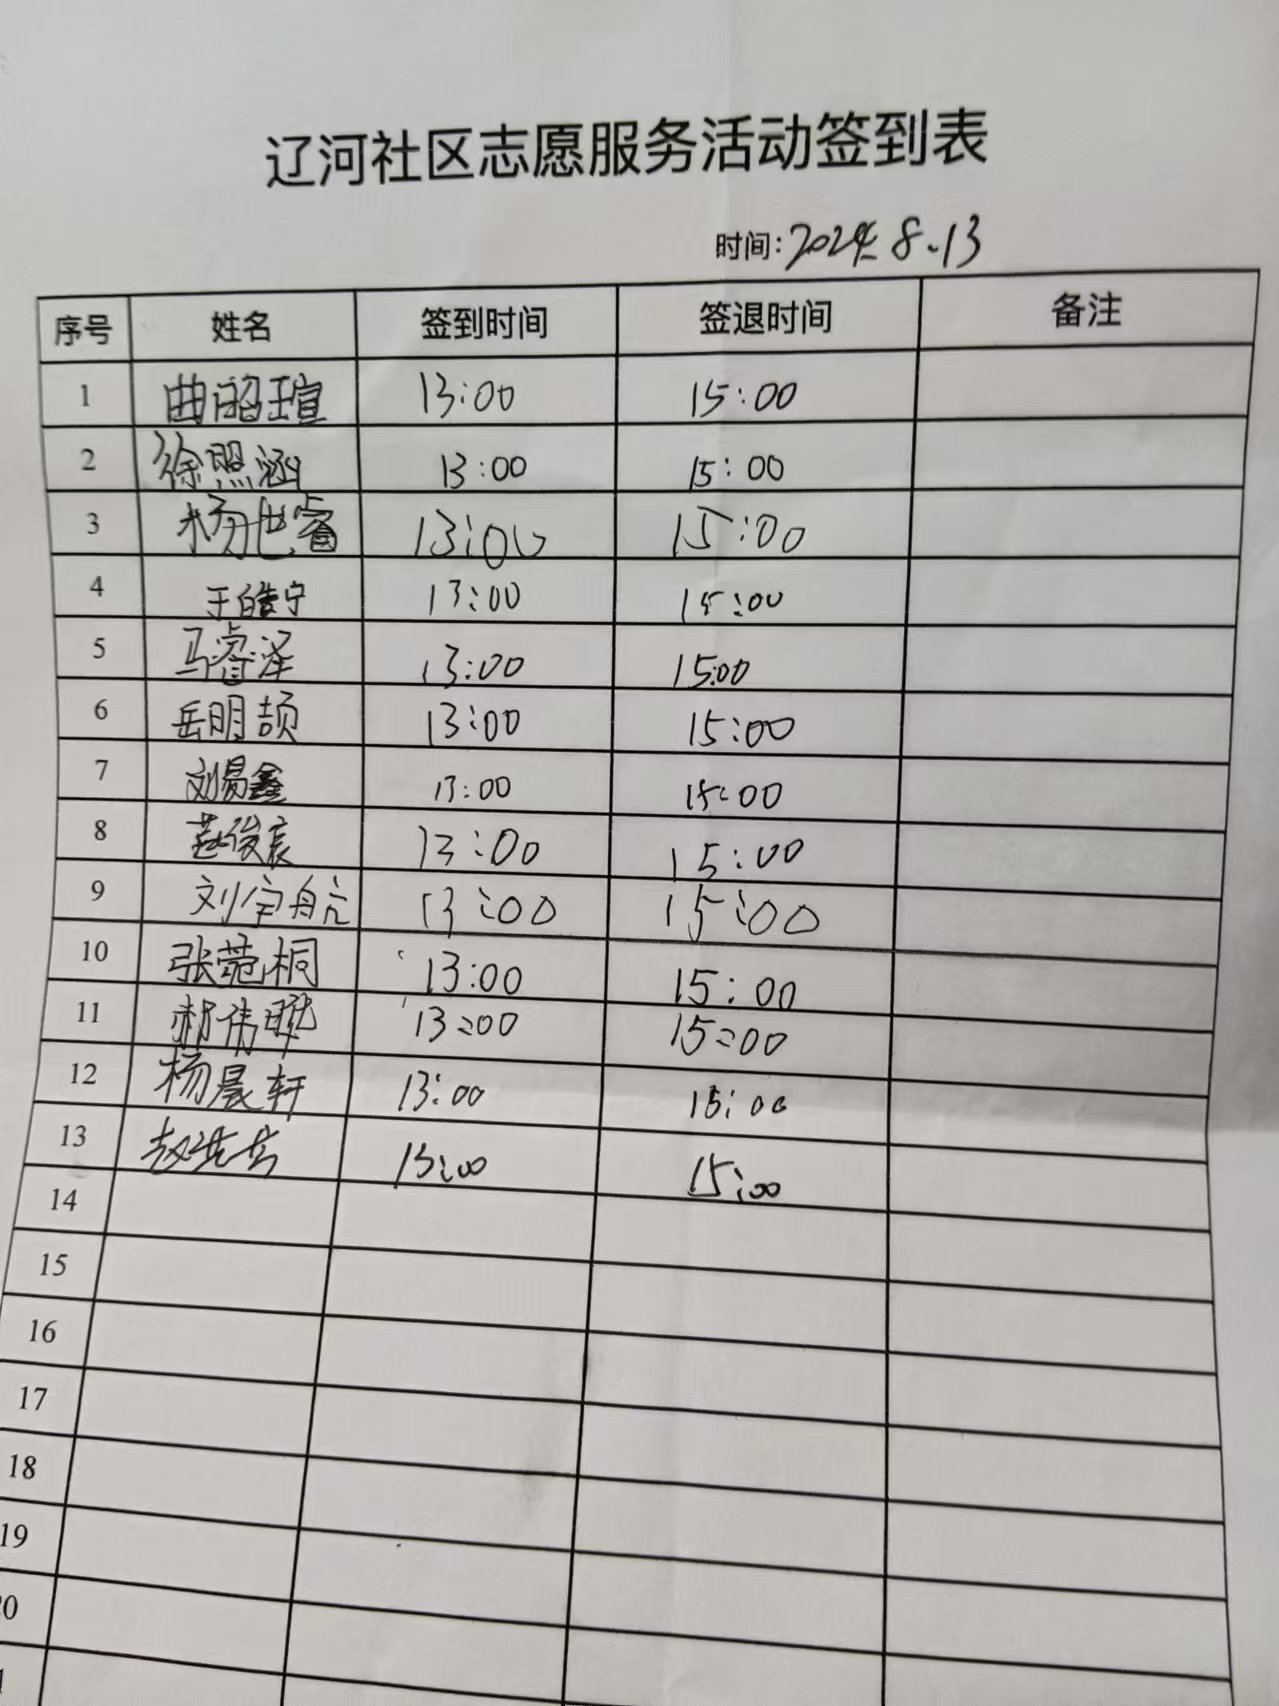 辽河社区志愿服务活动签到表
时间:2024.8.13
序号 姓名 签到时间 签退时间 备注
1 曲昭瑄 13:00 15:00
2 徐照涵 13:00 15:00
3 杨世睿 13:00 15:00
4 于皓宁 13:00 15:00
5 马睿泽 13:00 15:00
6 岳明颉 13:00 15:00
7 刘易鑫 13:00 15:00
8 赵俊宸 13:00 15:00
9 刘宇航 13:00 15:00
10 张菀桐 13:00 15:00
11 郝伟 13:00 15:00
12 杨晨轩 13:00 15:00
13 赵 13:00 15:00
14
15
16
17
18
19
20